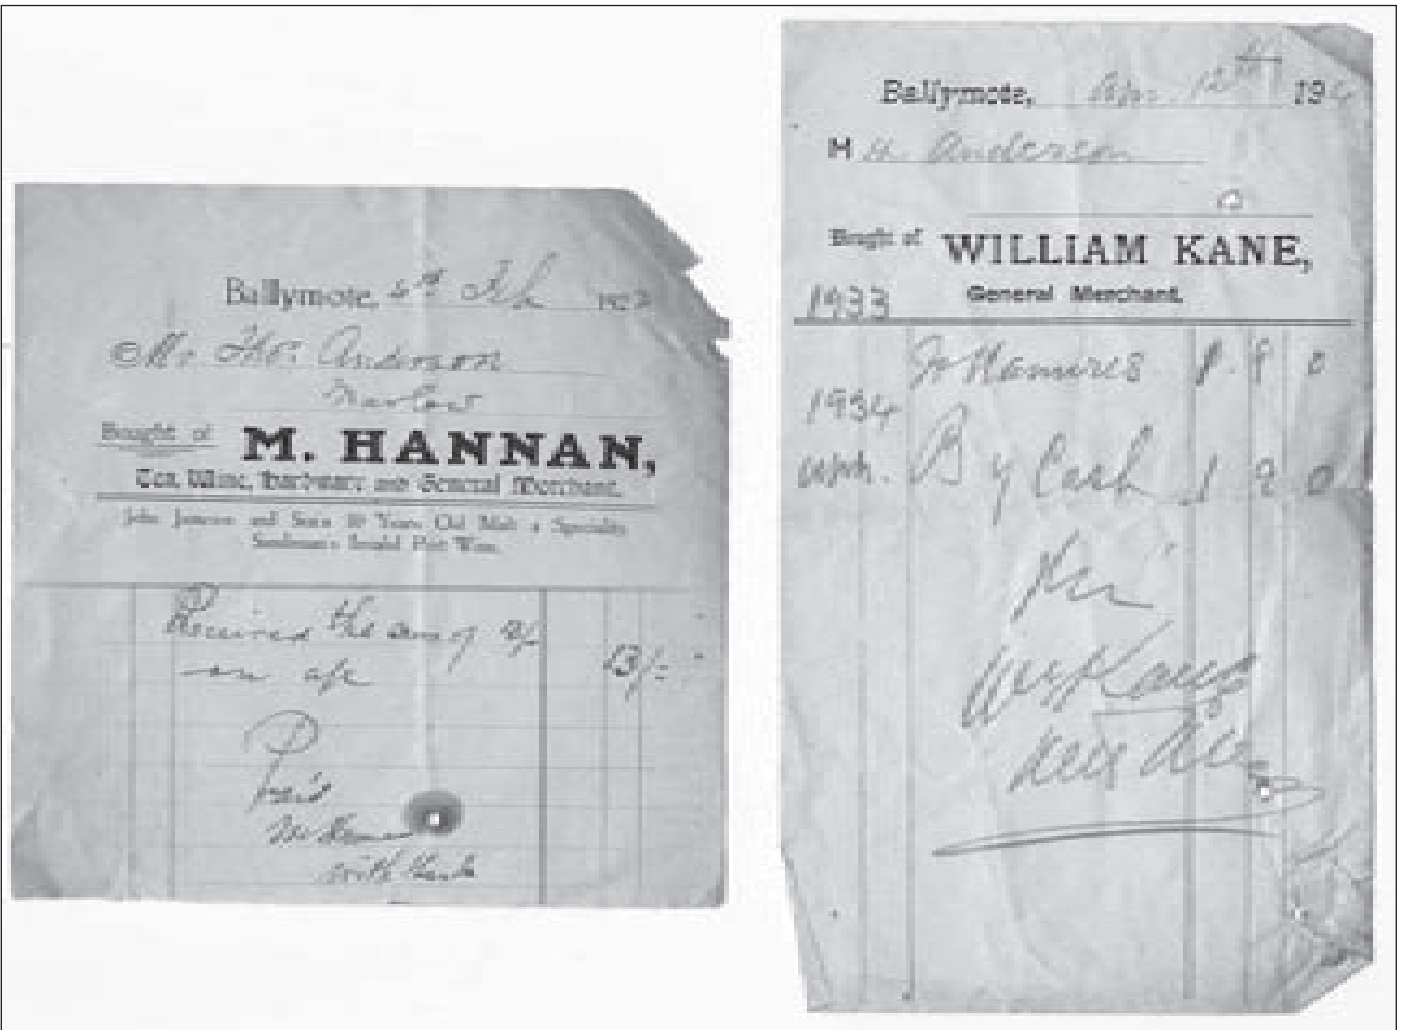 Ballymote, 6th Feb 192
Mr Thos. Anderson
Bought of M. HANNAN,
Tea, Wine, Hardware and General Merchant.
John Jameson and Son's 10 Years Old Malt a Speciality
Invalid Port Wine.
Received the sum of
on a/c
13/-
Paid
with thanks
Ballymote, Apr. 12th 19
M H. Anderson
Bought of WILLIAM KANE,
General Merchant.
1933
To Manures 1. 9 0
1934
Aph. By Cash 1 9 0
Wm Kane